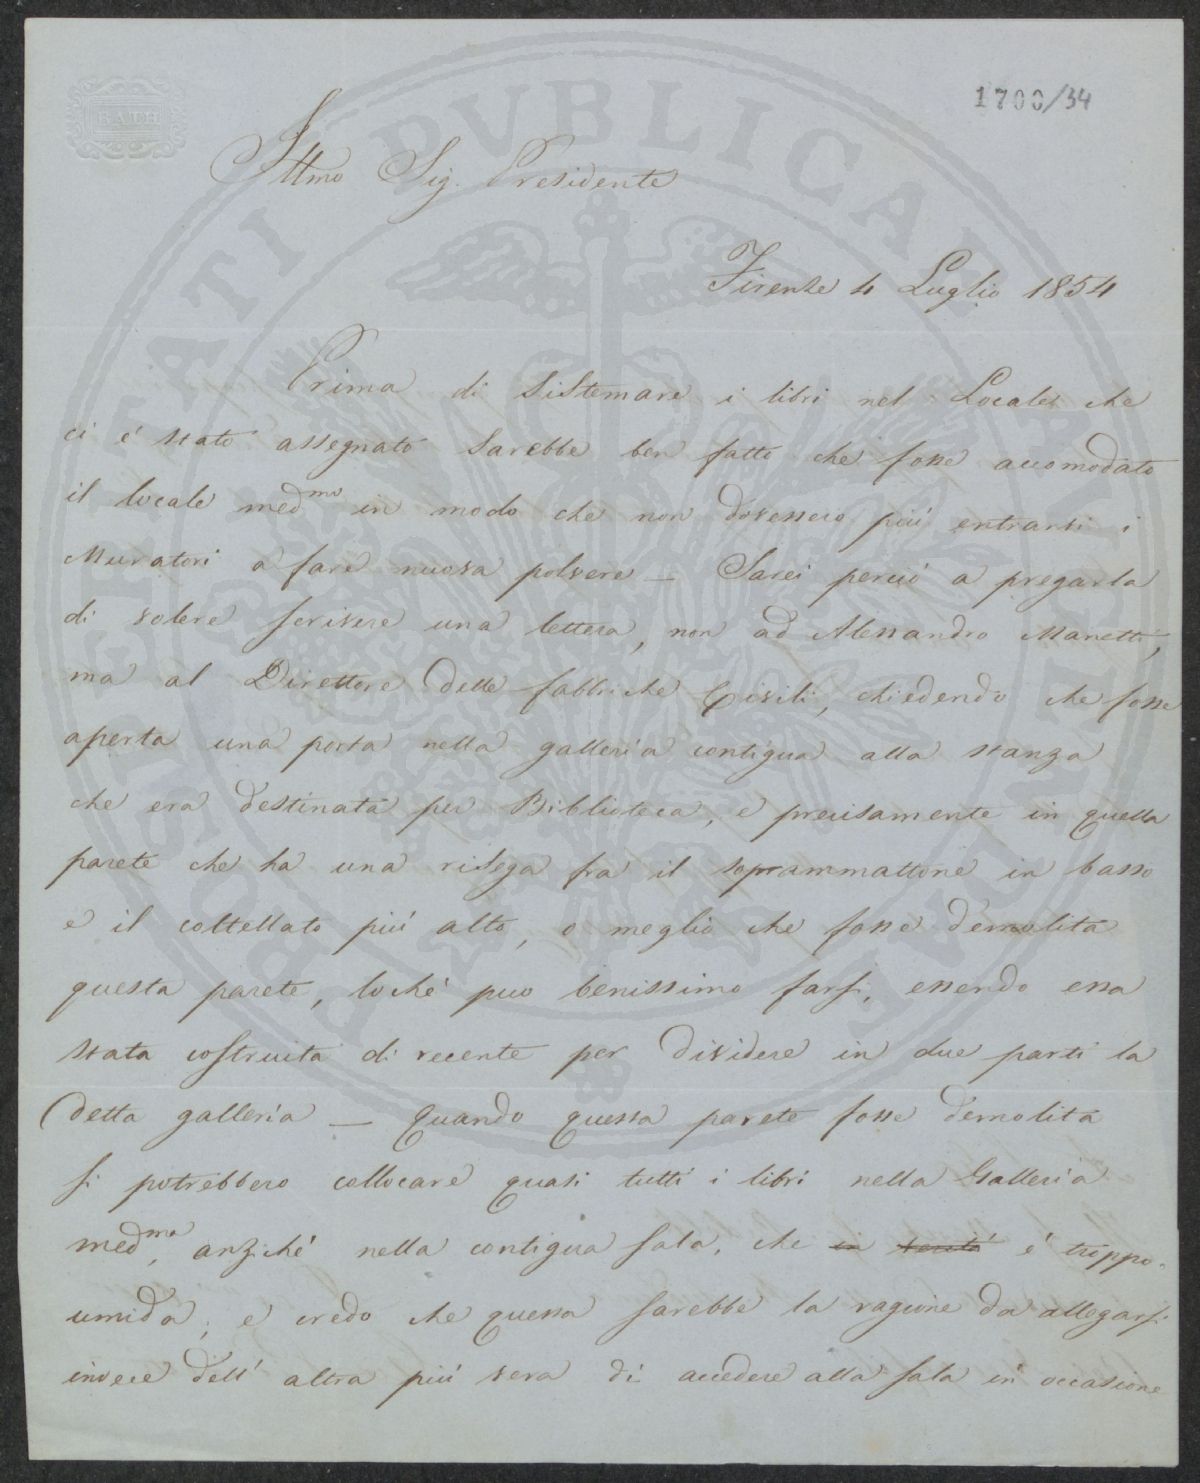 BATH
1700/34
Illmo Sig. Presidente
Firenze 4 Luglio 1854
Prima di sistemare i libri nel Locale che
ci é stato assegnato sarebbe ben fatto che fosse accomodato
il locale medmo in modo che non dovessero piú entrarvi i
Muratori a fare nuova polvere — Sarei perció a pregarla
di volere scrivere una lettera, non ad Alessandro Manetti,
ma al Direttore delle fabbriche Civili, chiedendo che fosse
aperta una porta nella galleria contigua alla stanza
che era destinata per Biblioteca, e precisamente in quella
parete che ha una risega fra il soprammattone in basso
e il coltellato piú alto, o meglio che fosse demolita
questa parete, loché puo benissimo farsi, essendo essa
stata costruita di recente per dividere in due parti la
detta galleria — Quando questa parete fosse demolita
si potrebbero collocare quasi tutti i libri nella Galleria
medma, anziché nella contigua sala, che in veritá é troppo
umida, e credo che questa sarebbe la ragione da allegarsi
invece dell' altra piú vera di accedere alla sala in occasione